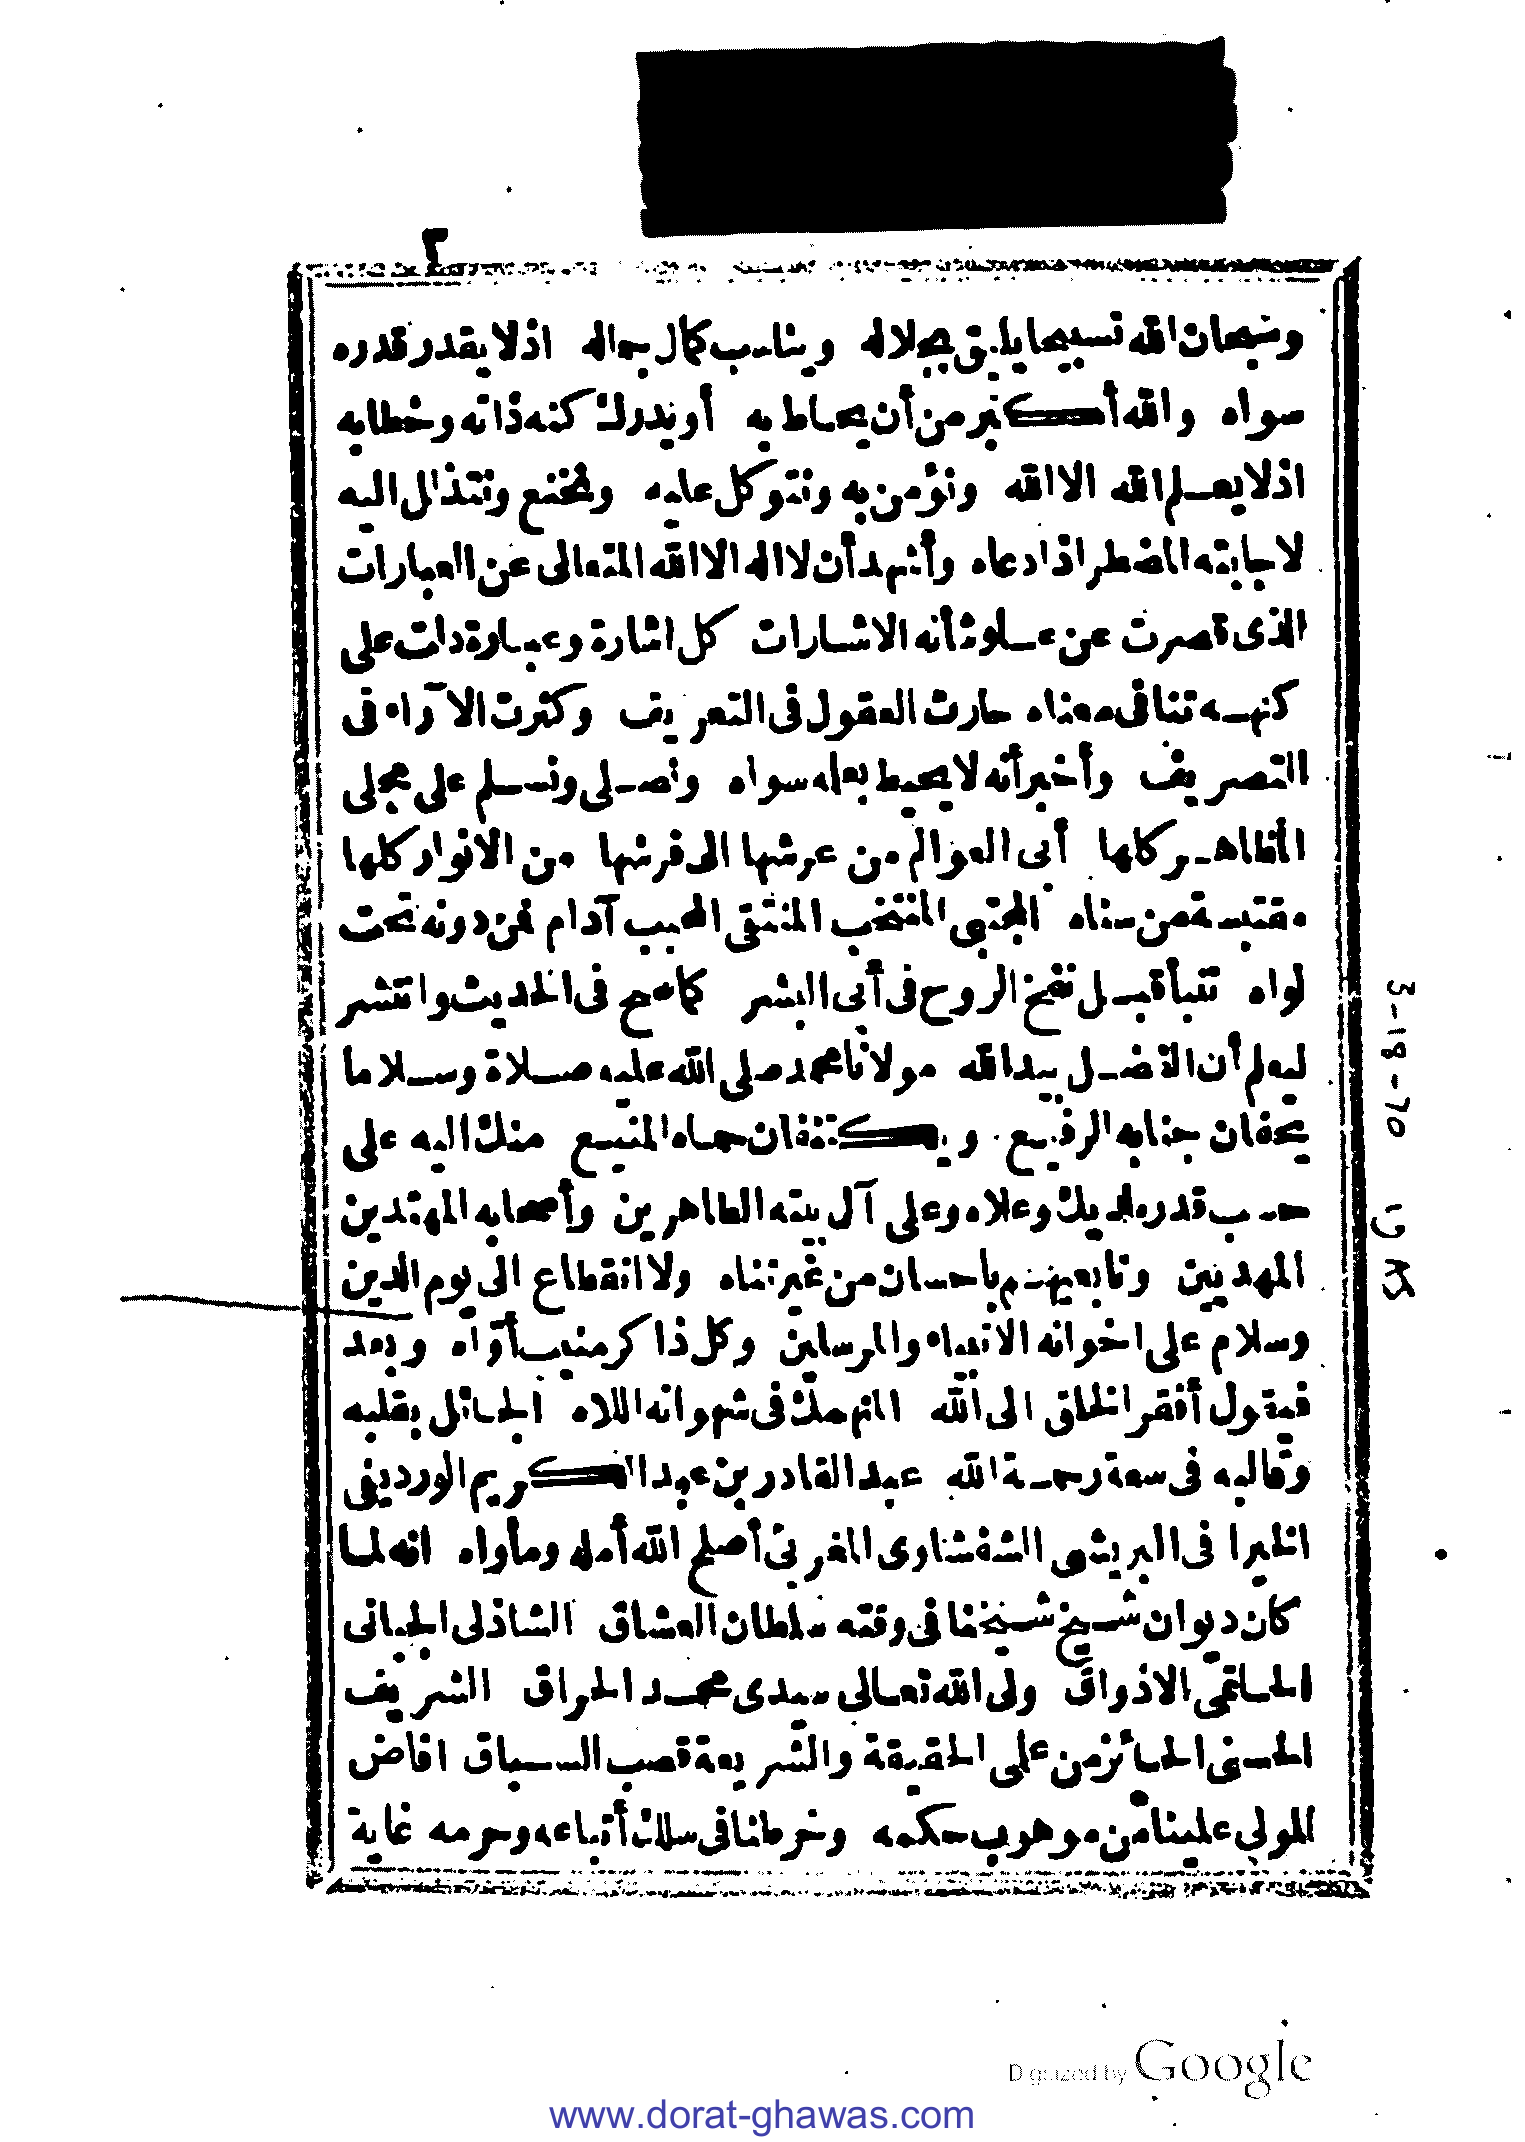 ٢
وسبحان الله تسبيحا يليق بجلاله ويناسب كمال جماله اذ لا يقدر قدره
سواه والله أكبر من أن يحاط به أو يدرك كنه ذاته وخطابه
اذ لا يعلم الله الا الله ونؤمن به ونتوكل عليه ونخنع ونتذلل اليه
لاجابته المضطر اذا دعاه وأشهد أن لا اله الا الله المتعالى عن العبارات
الذى قصرت عن علو شأنه الاشارات كل اشارة وعبارة دات على
كنهه تنافى معناه حارت العقول فى التعريف وكثرت الآراء فى
التصريف وأخبر أنه لا يحيط بعلمه سواه ونصلى ونسلم على مجلى
المظاهر كلها أبى العوالم من عرشها الى فرشها من الانوار كلها
مقتبسة من سناه المجتبى المنتخب المنتقى المحبب آدام فمن دونه تحت
لواه تنبأ قبل نفخ الروح فى أبى البشر كما صح فى الحديث وانتشر
ليعلم أن الفضل بيد الله مولانا محمد صلى الله عليه صلاة وسلاما
يحفان جنابه الرفيع ويكتنفان حماه المنيع منك اليه على
حسب قدره لديك وعلاه وعلى آل بيته الطاهرين وأصحابه المهتدين
المهديين وتابعيهم باحسان من غير تناه ولا انقطاع الى يوم الدين
وسلام على اخوانه الانبياء والمرسلين وكل ذاكر منيب أواه وبعد
فيقول أفقر الخلق الى الله المنهمك فى شهواته اللاه الجائل بقلبه
وقالبه فى سعة رحمة الله عبد القادر بن عبد الكريم الورديفى
الخيرا فى البريشى الشفشاوى المغربى أصلح الله أمله ومأواه انه لما
كان ديوان شيخ شيخنا فى وقته سلطان العشاق الشاذلى الجبانى
الحاتمى الاذواق ولى الله تعالى سيدى محمد الحراق الشريف
الحسنى الحائز من على الحقيقة والشريعة قصب السباق افاض
المولى علينا من موهوب حكمه وخرطنا فى سلك أتباعه وحرمه غاية
3-19-70
Digitized by Google
www.dorat-ghawas.com